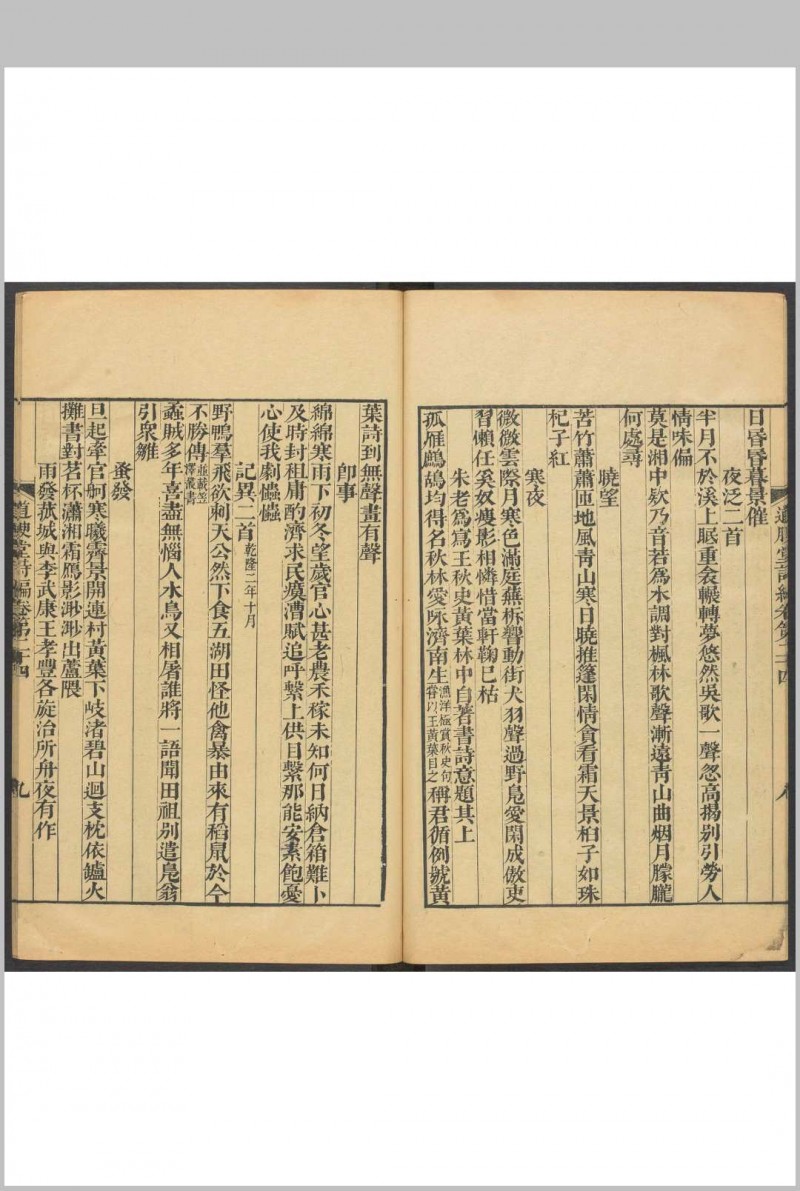 日昏昏暮景催
夜泛二首
半月不於溪上眠重衾轣轉夢悠然吳歌一聲忽高揭別引勞人
情味偏
莫是湘中欵乃音若為水調對楓林歌聲漸遠青山曲烟月朦朧
何處尋
曉望
苦竹蕭蕭匝地風青山寒日曉推篷閑情貪看霜天景桕子如珠
杞子紅
寒夜
微微雲際月寒色滿庭蕪柝響動街犬羽聲過野鳧愛閑成傲吏
習懶任奚奴瘦影相憐惜當軒鞠已枯
朱老為寫王秋史黃葉林中自著書詩意題其上
孤雁鷓鴣均得名秋林愛咏濟南生漁洋極賞秋史句嘗以王黃葉目之稱君循例號黃
葉詩到無聲畫有聲
卽事
綿綿寒雨下初冬望歲官心甚老農禾稼未知何日納倉箱難卜
及時封租庸酌濟求民瘼漕賦追呼繫上供目繫那能安素飽憂
心使我劇㦬㦬
記異二首乾隆二年十月
野鴨羣飛欲剌天公然下食五湖田怪他禽暴由來有稻鼠於今
不勝傳並載笠澤叢書
蟊賊多年喜盡無惱人水鳥又相屠誰將一語聞田祖別遣鳧翁
引衆雛
蚤發
旦起牽官舸寒曦霽景開連村黃葉下岐渚碧山迴支枕依鑪火
攤書對茗杯瀟湘霜鴈影渺渺出蘆隈
雨發菰城與李武康王孝豐各旋治所舟夜有作
九